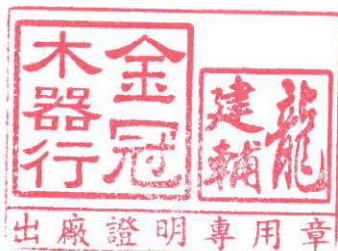 金冠
木器行
龍
建輔
出廠證明專用章